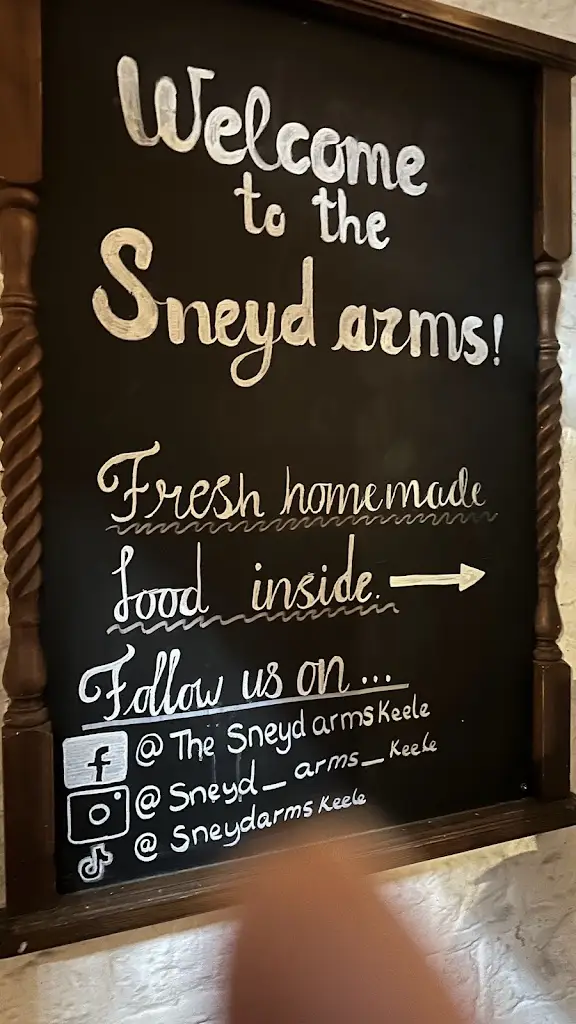 Welcome
to the
Sneyd arms!
Fresh homemade
food inside.
Follow us on ...
@ The Sneyd arms Keele
@ Sneyd_ arms_ Keele
@ Sneydarms Keele